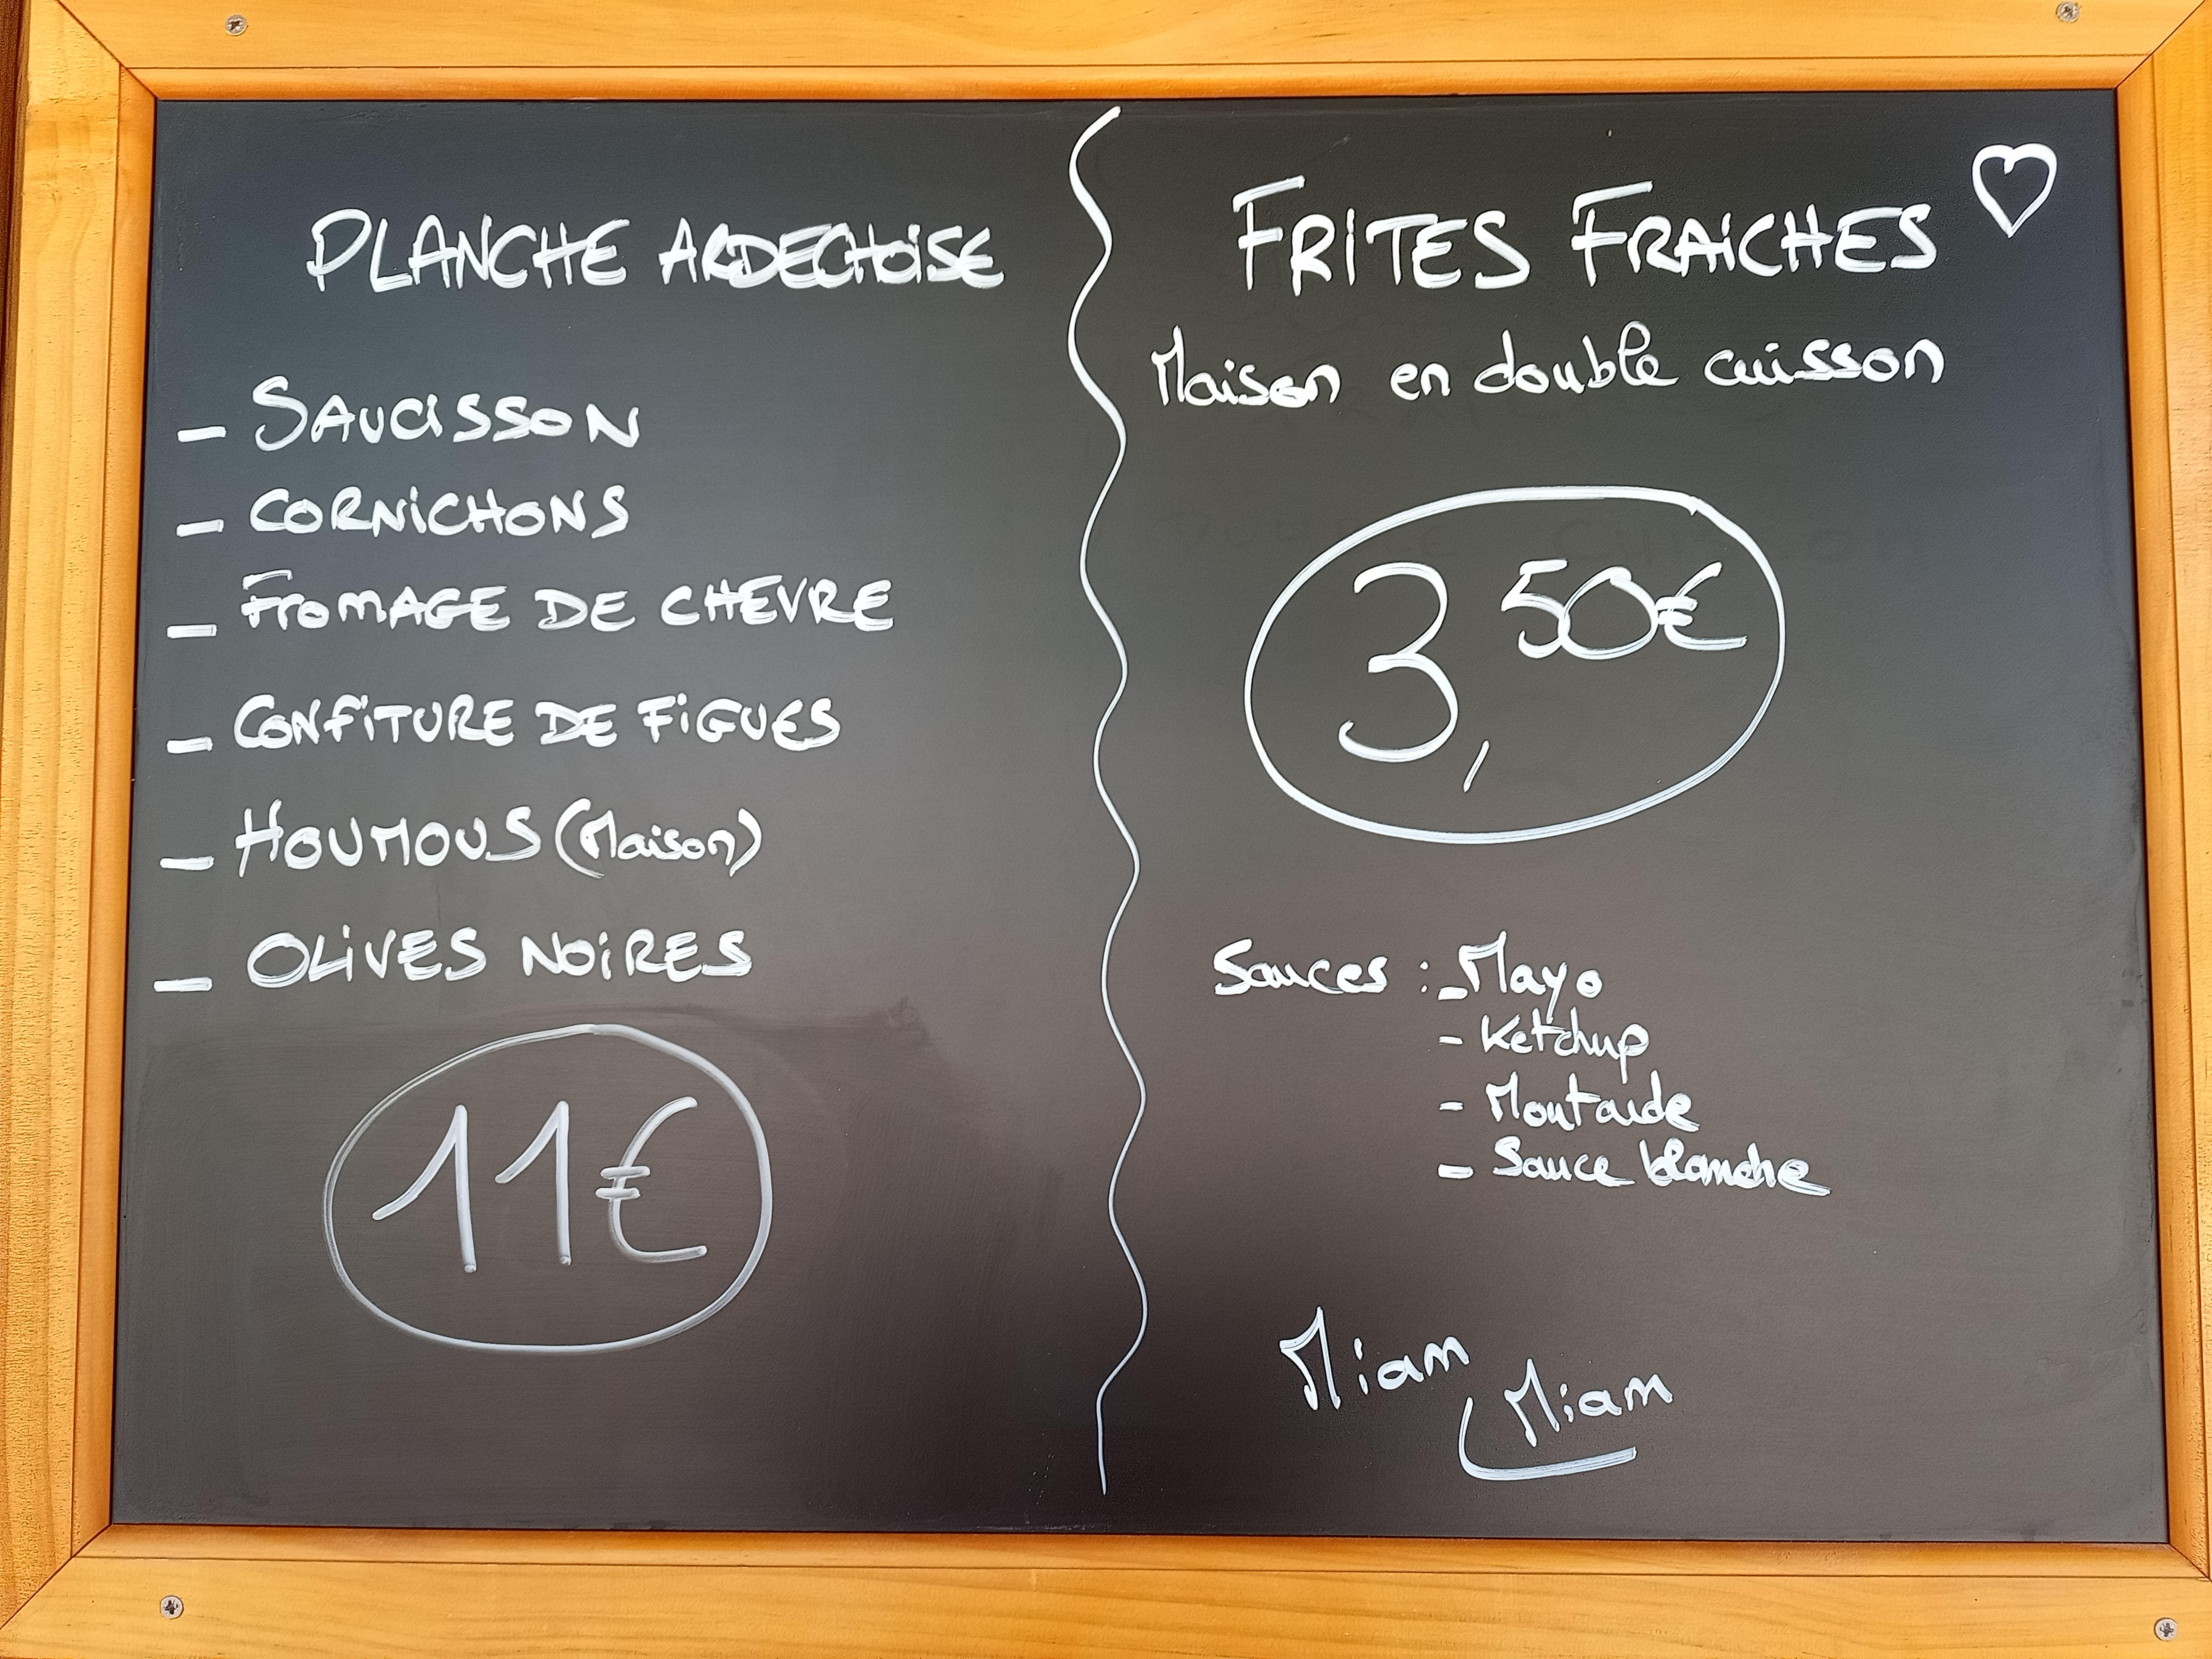 PLANCHE ARDECHOISE
- SAUCISSON
- CORNICHONS
- FROMAGE DE CHEVRE
- CONFITURE DE FIGUES
- HOUMOUS (Maison)
- OLIVES NOIRES
11€
FRITES FRAICHES
Maison en double cuisson
3,50€
Sauces : - Mayo
- Ketchup
- Moutarde
- Sauce blanche
Miam
Miam